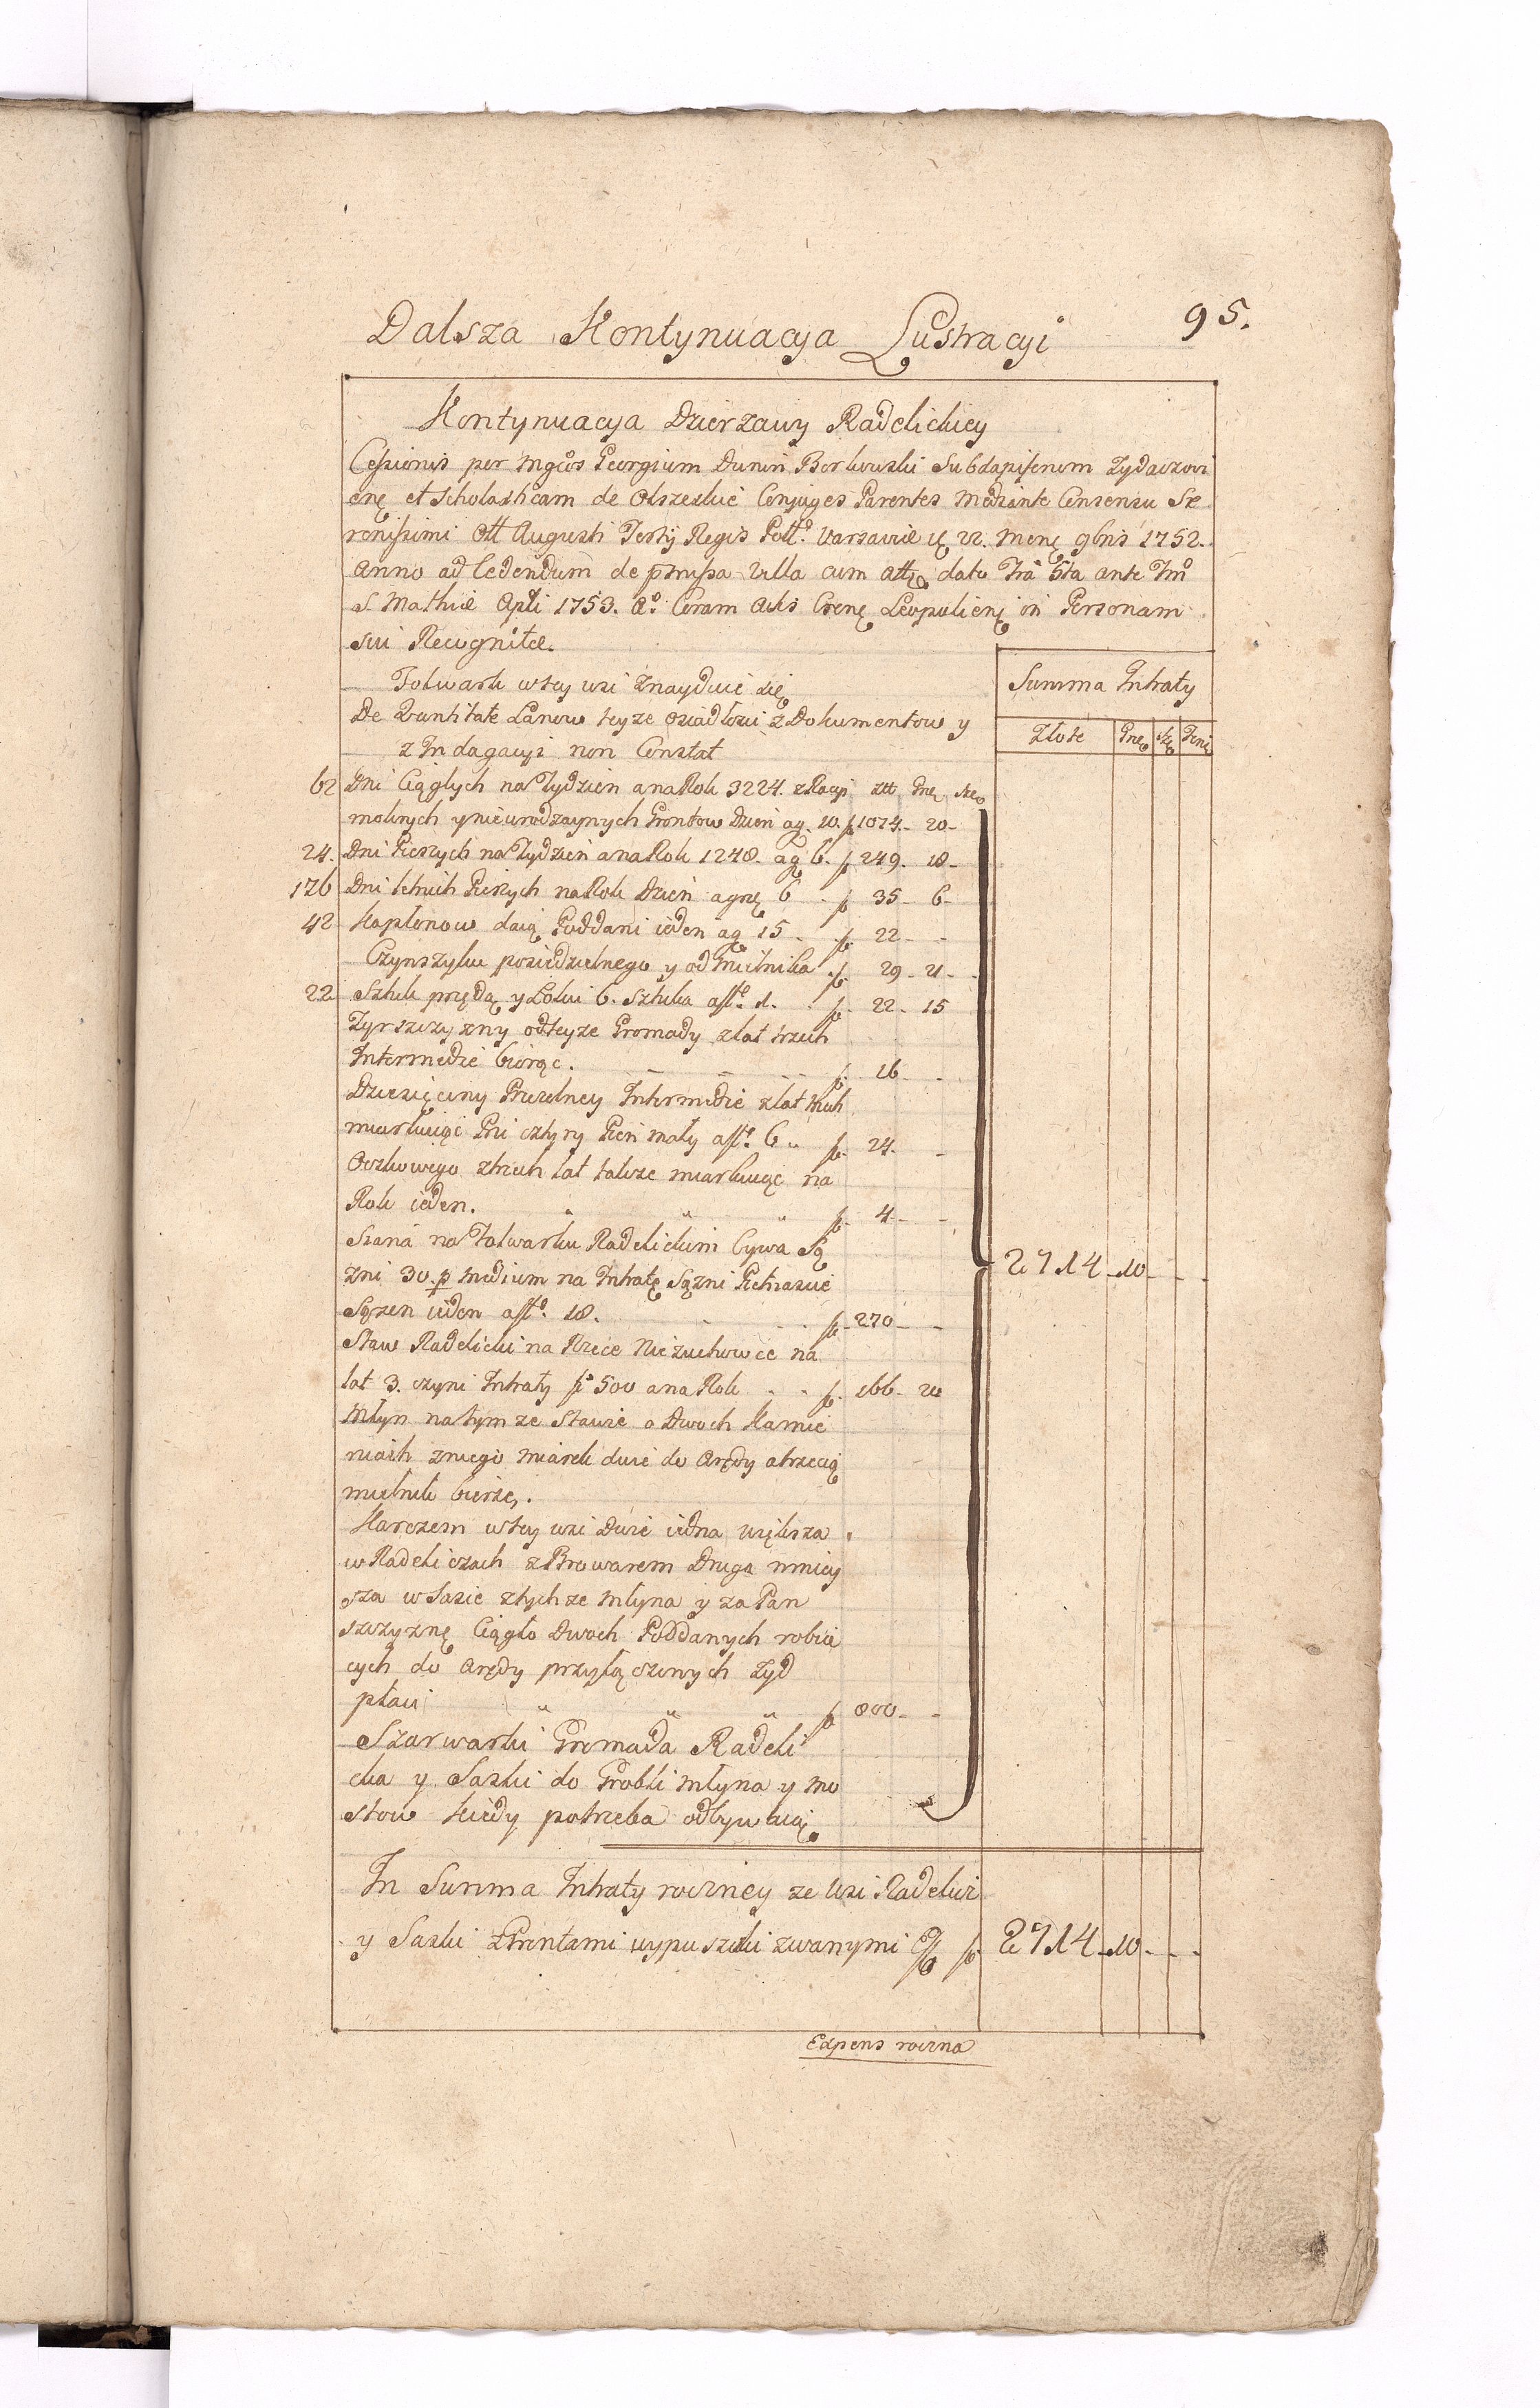 95.
Dalsza Kontynuacya Lustracyi
Kontynuacya Dzierzawy Radelickiey
Cessionis per Mgcos Georgium Dunin Borkowski Subdapiferum Zydaczovi
enę et Scholasticam de Olszeskie Conjuges Parentes Mediante Consensu Se
renissimi Augusti Tertij Regis Poll. Varsaviæ 22. Menę 9bris 1752.
Anno ad Cedendum de Villa cum dato 5ta ante
S. Mathiæ Apli 1753. Ao. Coram Actis Leopolienę in Personam
sui Recognitæ.
Folwark wtey wsi Znayduie się
Summa Intraty
De Quantitate Lanow teyze osiadłosci z Dokumentow y
z Indagacyi non Constat
Złote Grę Szę
62 Dni Ciąglych na Tydzien a na Rok 3224. z Racyi Złł Grę Sze
molnych y nieurodzaynych Grontow Dzien ag. 10. f 1074.- 20-
24. Dni Pieszych na Tydzien a na Rok 1248. ag 6. f 249. 18-
176 Dni letnich Pieszych na Rok Dzien a grę 6 f 35- 6-
42 Kapłonow daią Poddani ieden ag 15 f 22 - -
Czynszyku posiedzielnego y od Mielnika f 29 - 21 -
22 Sztuk przędą y Łokci 6. Sztuka a fl. 1. f 22 - 15
Zyrszczyzny odteyze Gromady zlat trzech
Intermedie biorąc. f. 16 -
Dziesięciny Pszczelney Intermedie zlat trzech
miarkuiąc Pni cztyry Pień mały a fl. 6 f 24. -
Oczkowego ztrzech lat takze miarkuiąc na
Rok ieden. f 4 - -
Siana na Folwarku Radelickim bywa Są
zni 30. p medium na Intratę Sązni Pietnascie
Sązen ieden a fl. 18. f 270 - -
2714 - 10 - - -
Staw Radelicki na Rzece Niezuchowce na
lat 3. czyni Intraty f 500 a na Rok f. 166 - 20
Młyn na tym ze Stawie o Dwoch Kamie
niach zniego Miarek dwie do Arędy a trzecią
mielnik bierze.
Karczem wtey wsi Dwie iedna większa
w Radeliczach z Browarem Druga mniey
sza w Sasie ztych ze Młyna y za Pan
szczyznę Ciągło Dwoch Poddanych robią
cych do Arędy przyłączonych Zyd
płaci f 800 - -
Szarwarki Gromada Radeli
cka y Saski do Grobli Młyna y Mo
stow kiedy potrzeba odbywaią
In Summa Intraty roczney ze Wsi Radelicz
y Saski z Grontami wypuszcki zwanymi f 2714 - 10 - - -
Expens roczna